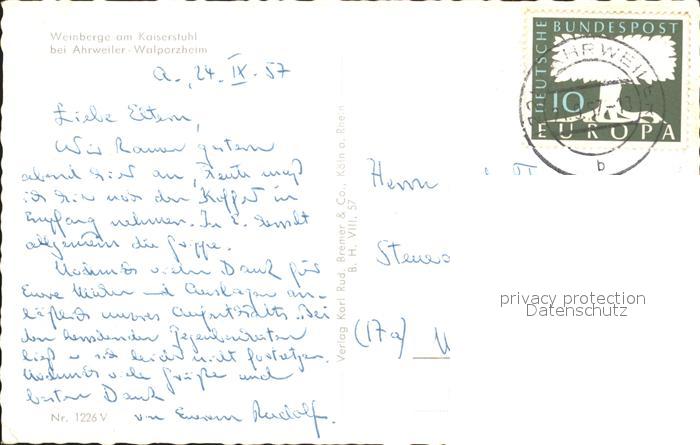 Weinberge am Kaiserstuhl
bei Ahrweiler-Walporzheim
A., 24. IX. 57
Liebe Eltern,
Wir kamen gestern
abend hier an, heute muß
ich hier noch den Koffer in
Empfang nehmen. In
allgemein die Grippe.
Nochmals vielen Dank für
Eure Mühen und Auslagen an-
läßlich unseres Aufenthalts. Bei
den
ließ sich leider nicht fortsetzen.
Nochmals viele Grüße und
besten Dank
von Eurem Rudolf.
Nr. 1226 V
Verlag Karl Rud. Bremer & Co., Köln a. Rhein
B. H. VIII. 57
DEUTSCHE BUNDESPOST
10
EUROPA
AHRWEIL
b
Herrn
(17a)
privacy protection
Datenschutz